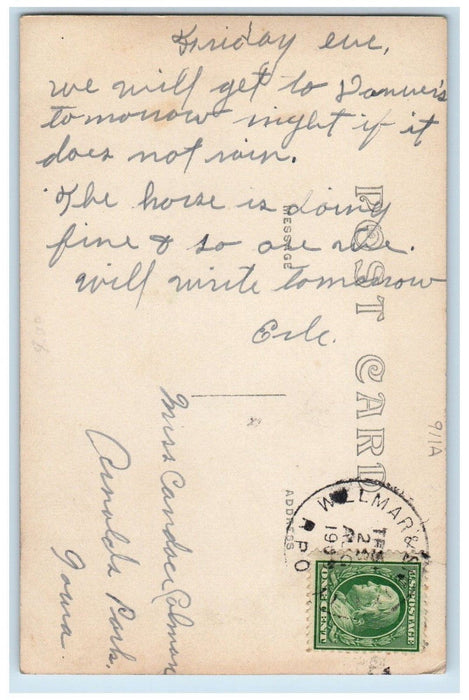 Friday eve,
we will get to Danvers
tomorrow night if it
does not rain.
The horse is doing
fine & so are we.
will write tomorrow
Erle.
POST CARD
MESSAGE
ADDRESS
Miss Candace
Arnolds Park,
Iowa.
911A
WILLMAR &
RPO
U.S. POSTAGE
ONE CENT